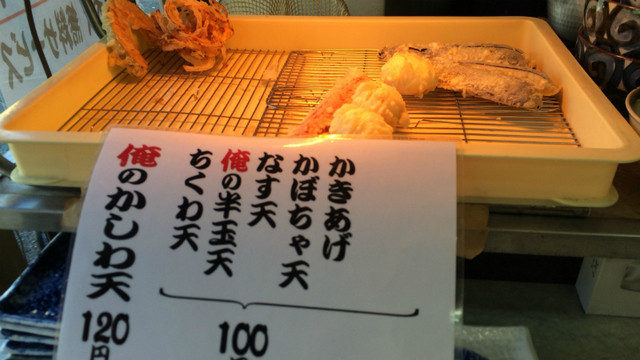 無料サービス
かきあげ
かぼちゃ天
なす天
俺の半玉天
ちくわ天
100
円
俺のかしわ天
120
円